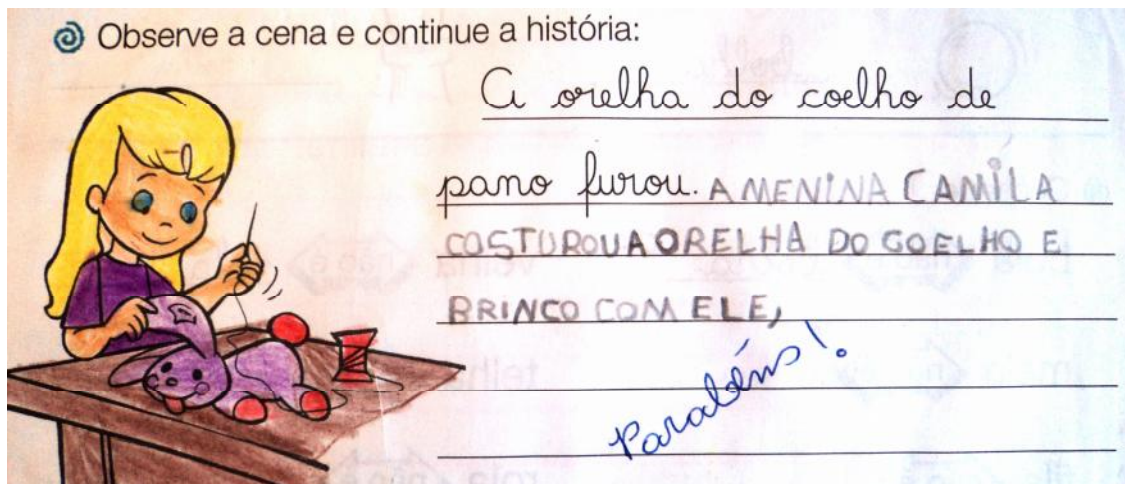 Observe a cena e continue a história:
A orelha do coelho de
pano furou. A MENINA CAMILA
COSTUROU A ORELHA DO COELHO E
BRINCO COM ELE,
Parabéns!